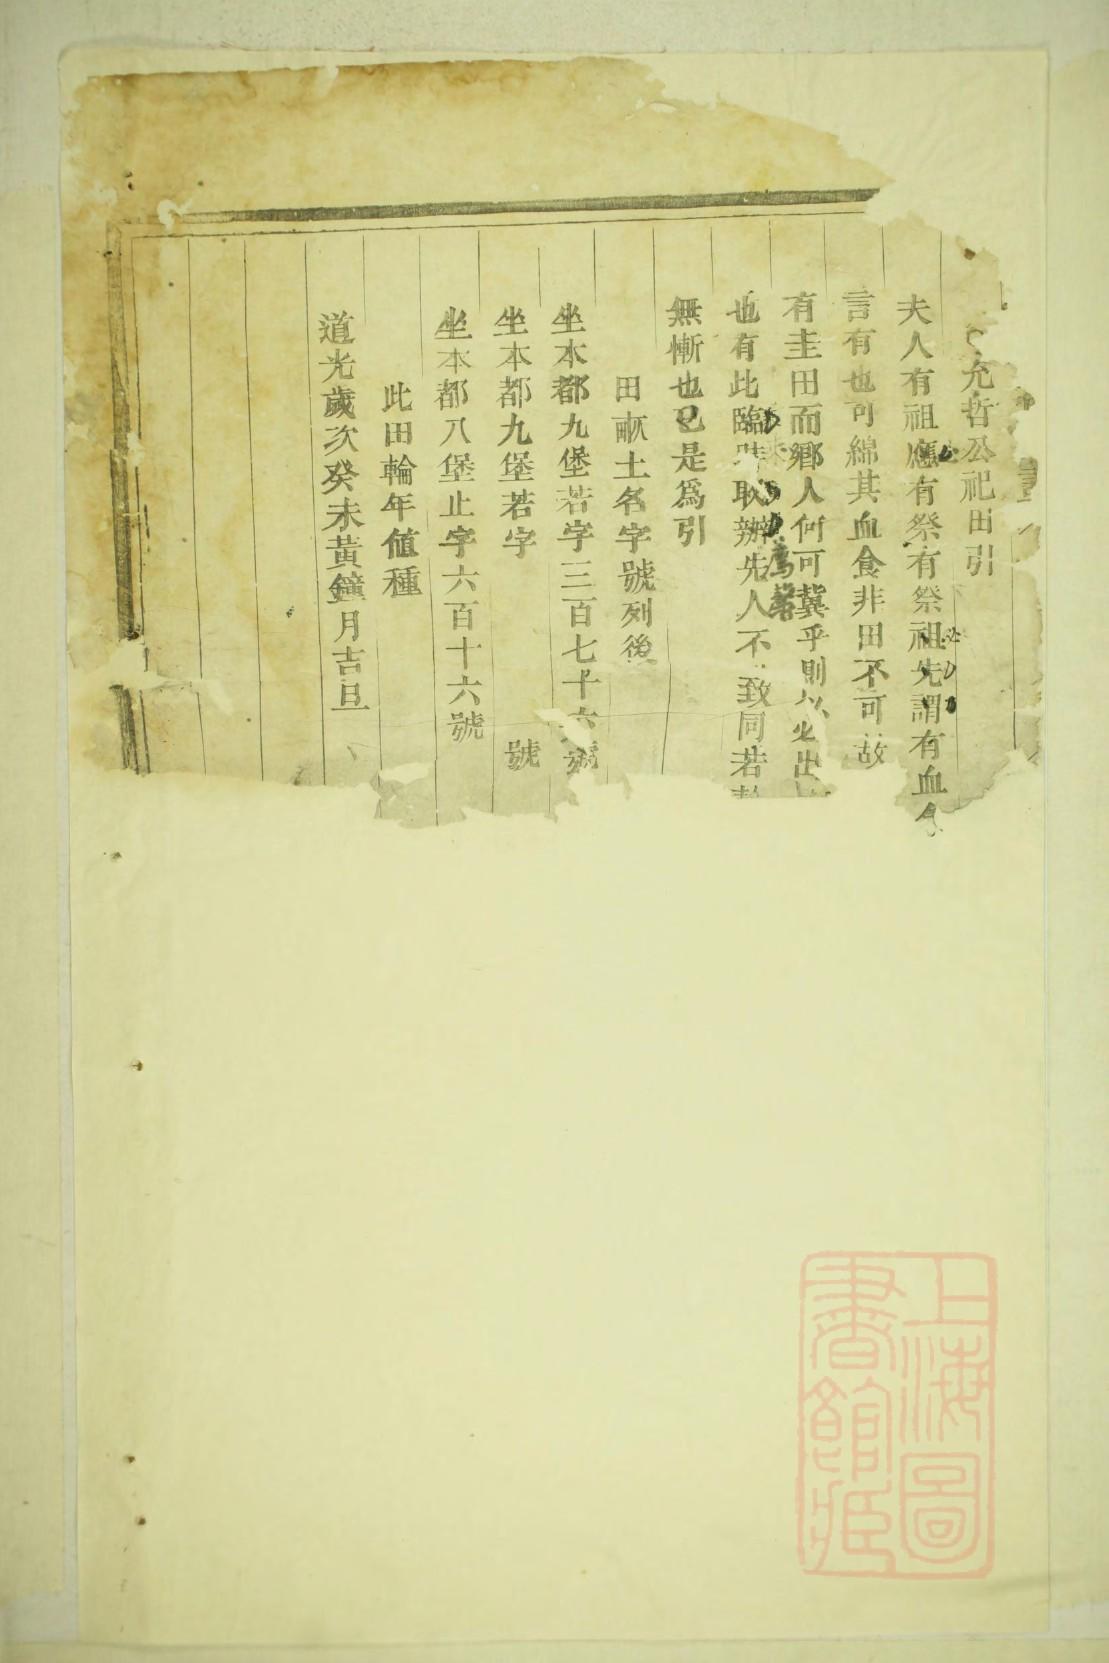 允哲公祀田引
夫人有祖應有祭有祭祖先謂有血食
言有也可綿其血食非田不可故
有圭田而鄉人何可冀乎則以必出
也有此臨時取辦先人不致同若
無慚也已是爲引
田畝土名字號列後
坐本都九堡若字三百七十六號
坐本都九堡若字 號
坐本都八堡止字六百十六號
此田輪年値種
道光歲次癸未黃鐘月吉旦
上海圖書館藏